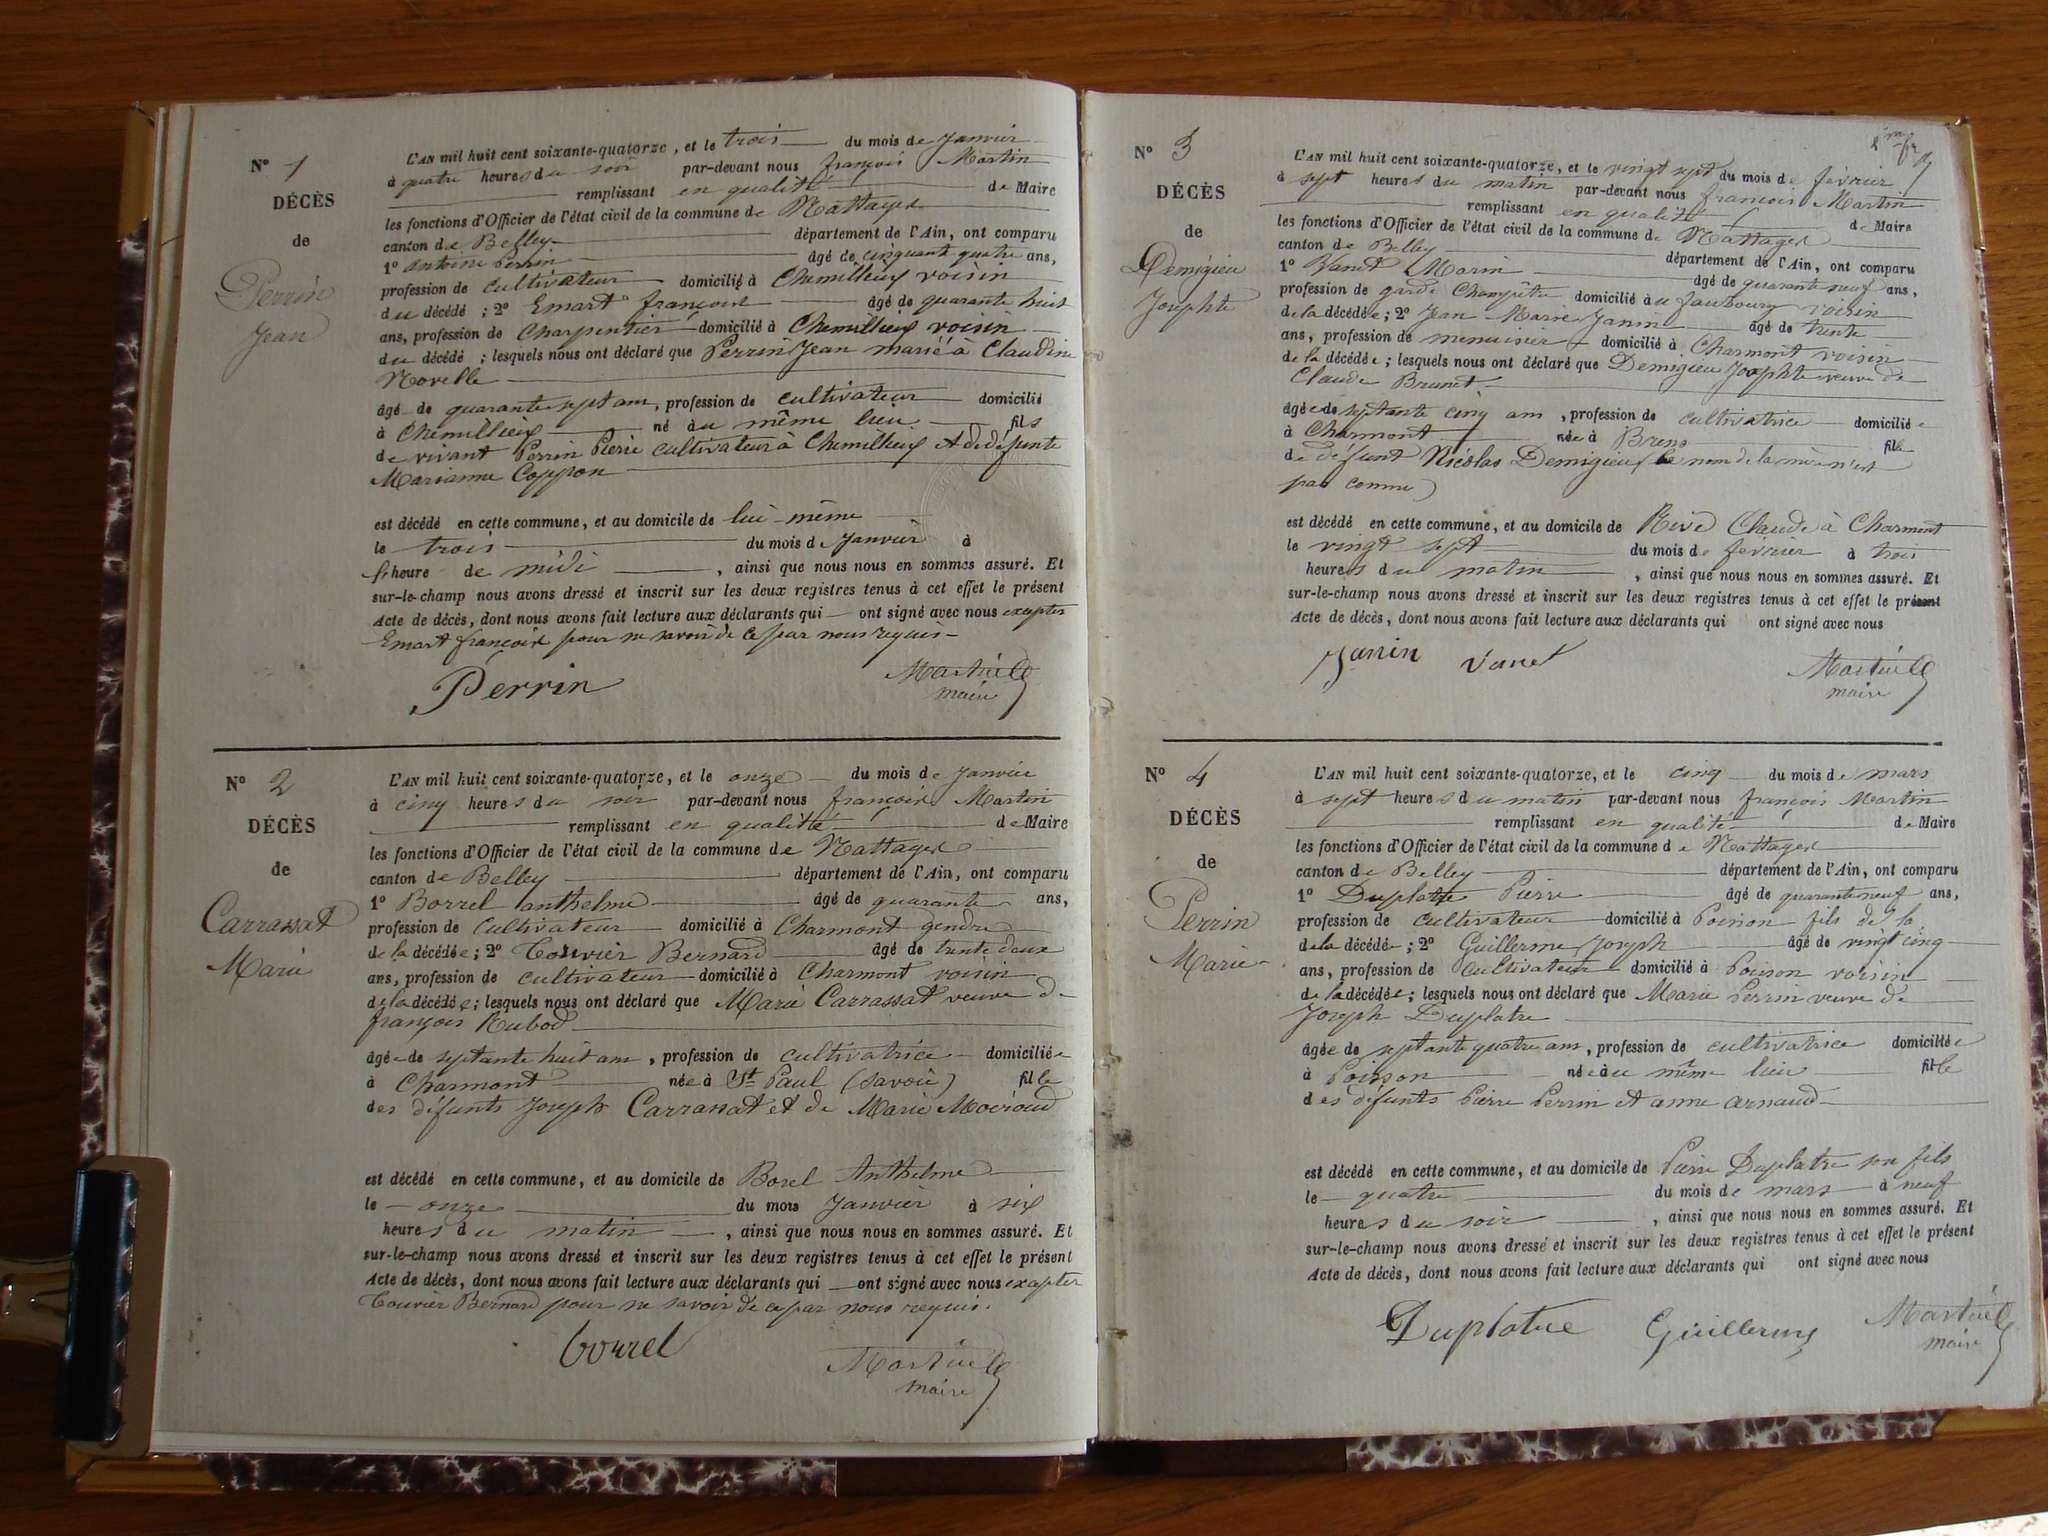 N° 1
DÉCÈS
de
Perrin
Jean
L'AN mil huit cent soixante-quatorze, et le trois du mois de Janvier
à quatre heures du soir par-devant nous françois Martin
remplissant en qualité de Maire
les fonctions d'Officier de l'état civil de la commune de Nattages
canton de Belley département de l'Ain, ont comparu
1° Antoine Perrin âgé de cinquante quatre ans,
profession de cultivateur domicilié à Chemillieu voisin
du décédé ; 2° Emart françois âgé de quarante huit
ans, profession de Charpentier domicilié à Chemillieu voisin
du décédé ; lesquels nous ont déclaré que Perrin Jean marié à Claudine
Novelle
âgé de quarante sept ans, profession de cultivateur domicilié
à Chemillieu né au même lieu fils
de vivant Perrin Pierre cultivateur à Chemillieu et de défunte
Marianne Coppon
est décédé en cette commune, et au domicile de lui-même
le trois du mois de Janvier à
heure de midi , ainsi que nous nous en sommes assuré. Et
sur-le-champ nous avons dressé et inscrit sur les deux registres tenus à cet effet le présent
Acte de décès, dont nous avons fait lecture aux déclarants qui ont signé avec nous exepter
Emart françois pour ne savoir de ce par nous requis
Perrin
maire
N° 2
DÉCÈS
de
Carrassat
Marie
L'AN mil huit cent soixante-quatorze, et le onze du mois de Janvier
à cinq heures du soir par-devant nous françois Martin
remplissant en qualité de Maire
les fonctions d'Officier de l'état civil de la commune de Nattages
canton de Belley département de l'Ain, ont comparu
1° Borrel anthelme âgé de quarante ans,
profession de cultivateur domicilié à Charmont gendre
de la décédée ; 2° Touvier Bernard âgé de trente deux
ans, profession de cultivateur domicilié à Charmont voisin
de la décédée ; lesquels nous ont déclaré que Marie Carrassat veuve de
françois Rubod
âgée de septante huit ans, profession de cultivatrice domiciliée
à Charmont née à St Paul (Savoie) fille
des défunts Joseph Carrassat et de Marie
est décédé en cette commune, et au domicile de Borel Anthelme
le onze du mois Janvier à six
heures du matin , ainsi que nous nous en sommes assuré. Et
sur-le-champ nous avons dressé et inscrit sur les deux registres tenus à cet effet le présent
Acte de décès, dont nous avons fait lecture aux déclarants qui ont signé avec nous exepter
Touvier Bernard pour ne savoir de ce par nous requis.
borrel
maire
N° 3
DÉCÈS
de
Demigieu
Josephte
L'AN mil huit cent soixante-quatorze, et le vingt sept du mois de février
à sept heures du matin par-devant nous françois Martin
remplissant en qualité de Maire
les fonctions d'Officier de l'état civil de la commune de Nattages
canton de Belley département de l'Ain, ont comparu
1° Vanet Marin âgé de quarante neuf ans,
profession de garde Champêtre domicilié au faubourg voisin
de la décédée ; 2° Jean Marie Janin âgé de trente
ans, profession de menuisier domicilié à Charmont voisin
de la décédée ; lesquels nous ont déclaré que Demigieu Josephte veuve de
Claude Brunet
âgée de septante cinq ans, profession de cultivatrice domiciliée
à Charmont née à Brens fille
de défunt Nicolas Demigieu (le nom de la mère n'est
pas connu)
est décédé en cette commune, et au domicile de Rive Claude à Charmont
le vingt sept du mois de février à trois
heures du matin , ainsi que nous nous en sommes assuré. Et
sur-le-champ nous avons dressé et inscrit sur les deux registres tenus à cet effet le présent
Acte de décès, dont nous avons fait lecture aux déclarants qui ont signé avec nous
Janin Vanet
maire
N° 4
DÉCÈS
de
Perrin
Marie
L'AN mil huit cent soixante-quatorze, et le cinq du mois de mars
à sept heures du matin par-devant nous françois Martin
remplissant en qualité de Maire
les fonctions d'Officier de l'état civil de la commune de Nattages
canton de Belley département de l'Ain, ont comparu
1° Duplatre Pierre âgé de quarante neuf ans,
profession de cultivateur domicilié à Poisson fils de la
de la décédée ; 2° Guillerme Joseph âgé de vingt cinq
ans, profession de Cultivateur domicilié à Poisson voisin
de la décédée ; lesquels nous ont déclaré que Marie Perrin veuve de
Joseph Duplatre
âgée de septante quatre ans, profession de cultivatrice domiciliée
à Poisson née au même lieu fille
des défunts Pierre Perrin et anne arnaud
est décédé en cette commune, et au domicile de Pierre Duplatre son fils
le quatre du mois de mars à neuf
heures du soir , ainsi que nous nous en sommes assuré. Et
sur-le-champ nous avons dressé et inscrit sur les deux registres tenus à cet effet le présent
Acte de décès, dont nous avons fait lecture aux déclarants qui ont signé avec nous
Duplatre Guillerme
maire